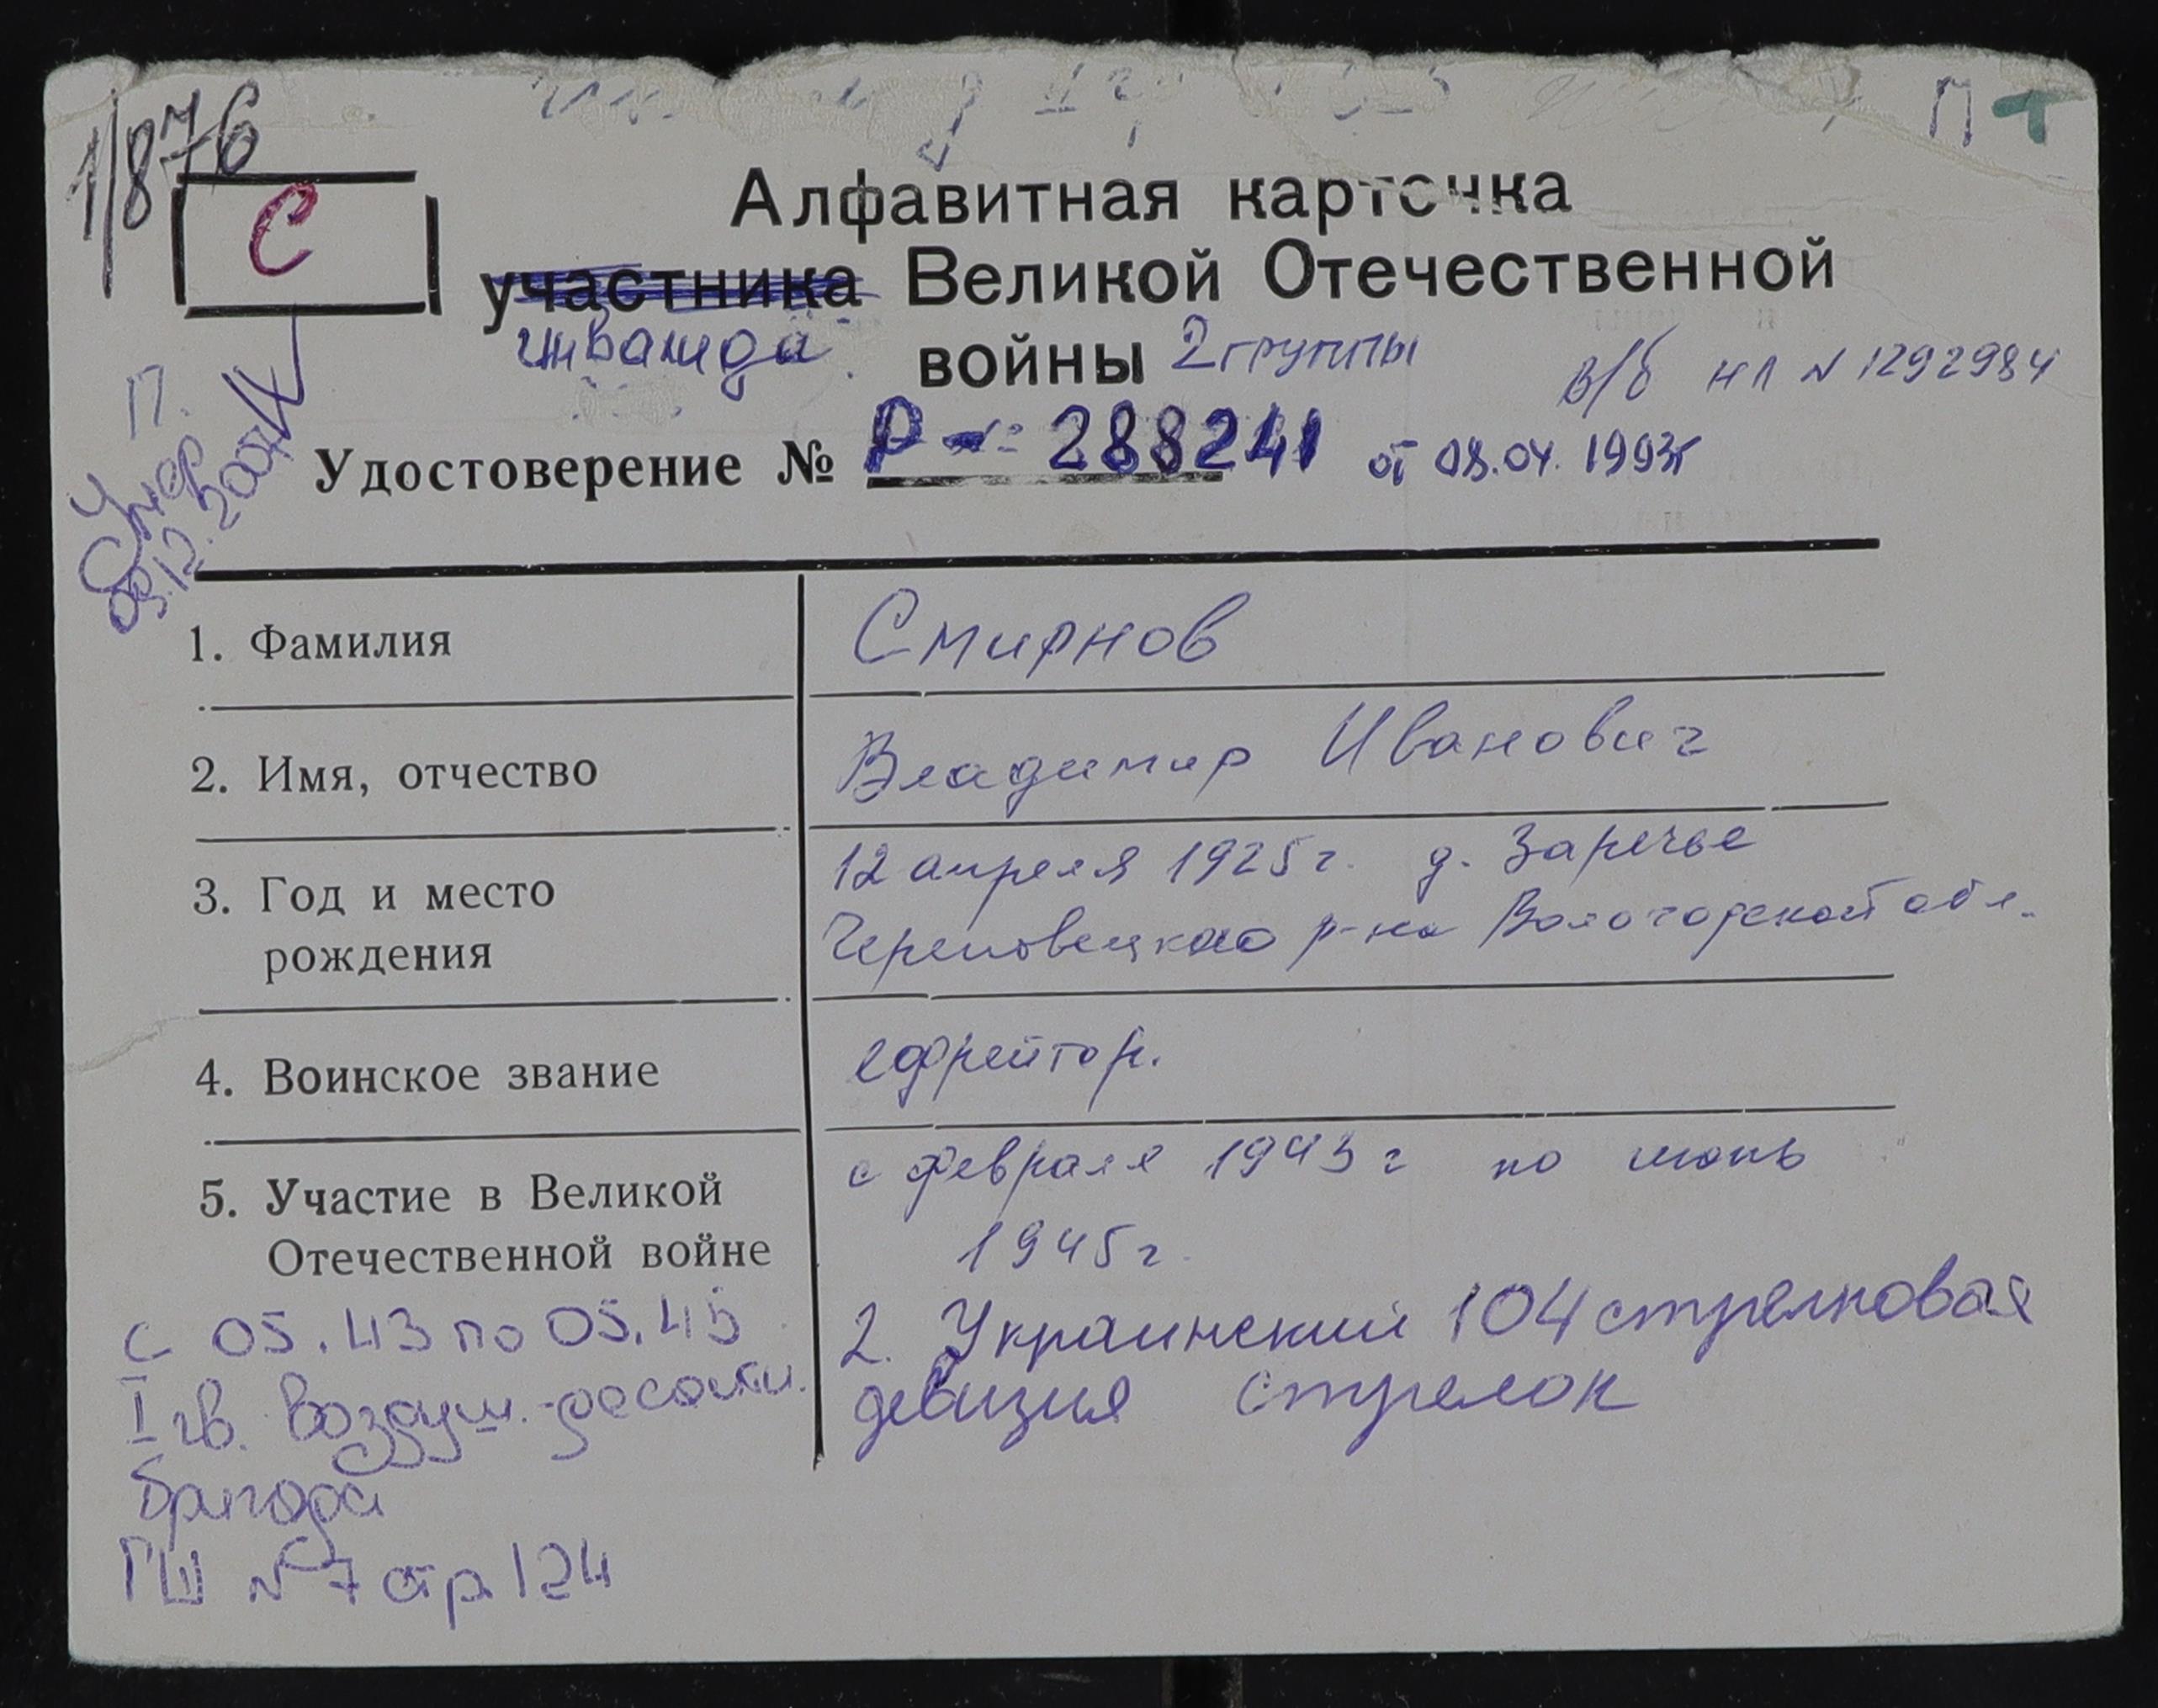 1/876
П
С
Алфавитная карточка
участника Великой Отечественной
инвалида войны 2 группы
в/б НЛ N 1292984
Удостоверение № Р- 288241 от 08.04.1993г
П.
Умер
09.12.2007
1. Фамилия Смирнов
2. Имя, отчество Владимир Иванович
3. Год и место рождения 12 апреля 1925г. д. Заречье
Череповецкого р-на Вологодской обл.
4. Воинское звание ефрейтор.
5. Участие в Великой Отечественной войне с февраля 1943г по июнь
1945г.
2. Украинский 104 стрелковая
девизия стрелок
с 05.43 по 05.45
I гв. воздуш.-десантн.
бригада
ГШ N 7 стр. 124